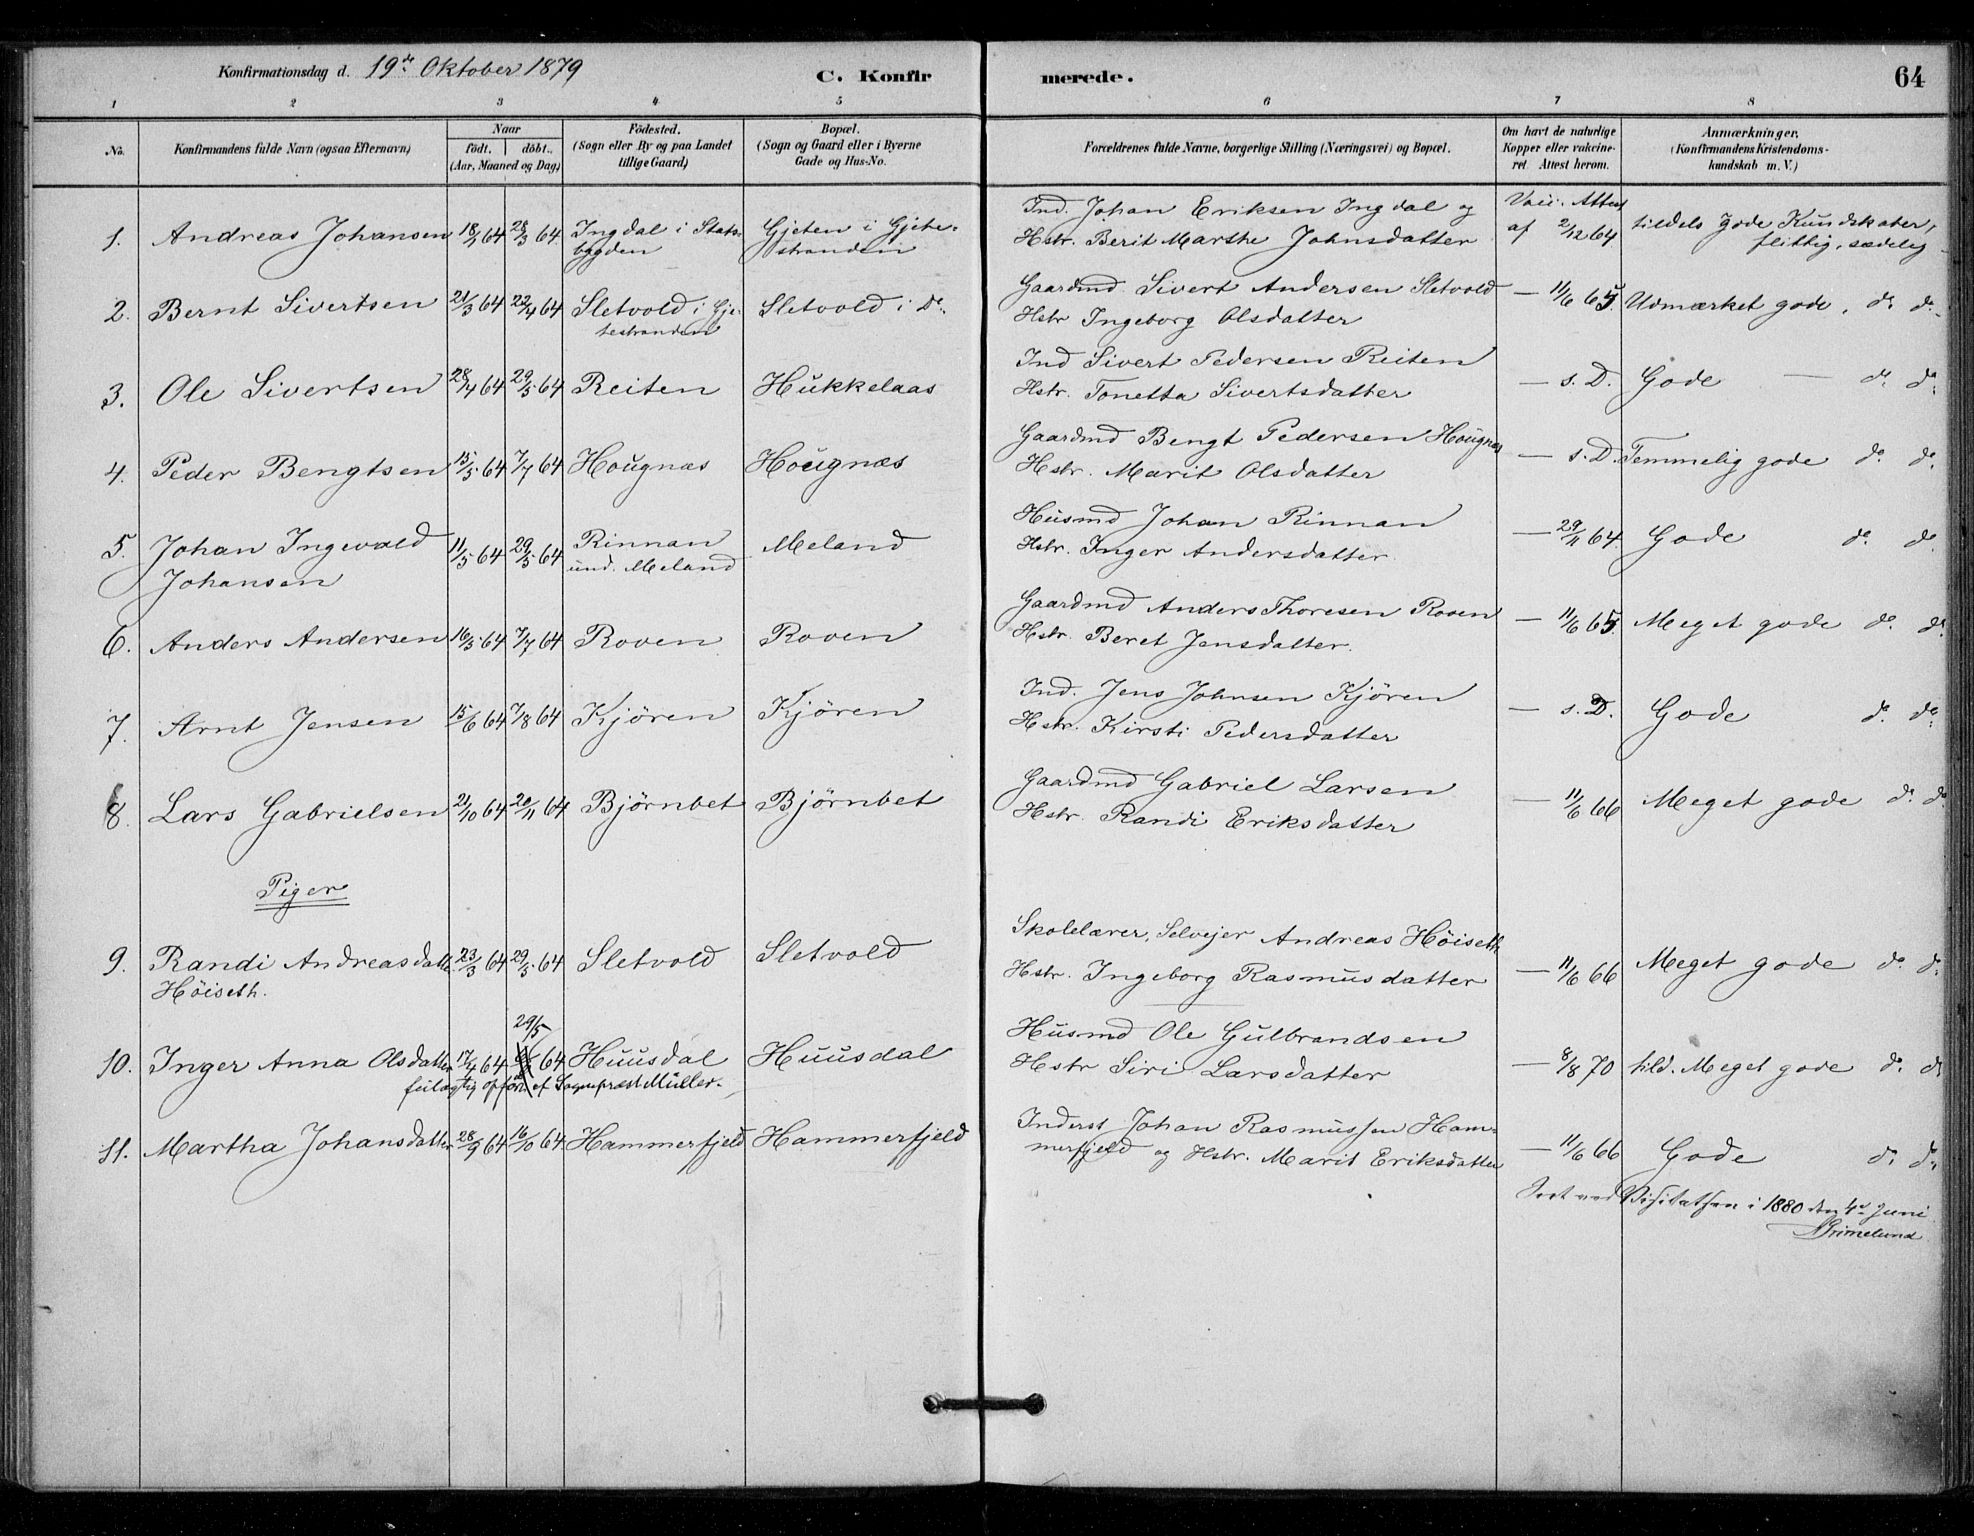 Konfirmationsdag d. 19de Oktober 1879
C. Konfirmerede.
64
1 2 3 4 5 6 7 8
No.
Konfirmandens fulde Navn (ogsaa Efternavn)
Naar
födt. döbt.
(Aar, Maaned og Dag)
Födested.
(Sogn eller By og paa Landet
tillige Gaard)
Bopæl.
(Sogn og Gaard eller i Byerne
Gade og Hus-No.
Forældrenes fulde Navne, borgerlige Stilling (Næringsvei) og Bopæl.
Om havt de naturlige
Kopper eller vakcine-
ret. Attest herom.
Anmærkninger.
(Konfirmandens Kristendoms-
kundskab m. V.)
1. Andreas Johansen 18/1 64 28/3 64 Ingdal i Stads- Gjeten i Gjete- Ind. Johan Eriksen Ingdal og Vacc. Attest tildels gode Kundskaber,
bygden stranden Hstr. Berit Marthe Johnsdatter af 2/12 64 flittig, sædelig
2. Bernt Sivertsen 21/3 64 22/4 64 Sletvold i Gje- Sletvold i Do. Gaardmd. Sivert Andersen Sletvold — 11/6 65. Udmærket gode, do do
testranden Hstr Ingeborg Olsdatter
3. Ole Sivertsen 28/4 64 29/5 64 Reiten Hukkelaas Ind Sivert Pedersen Reiten — s. D. Gode — do do
Hstr. Tonetta Sivertsdatter
4. Peder Bengtsen 15/5 64 7/7 64 Hougnæs Hougnæs Gaardmd Bengt Pedersen Hougnæs — s. D. Temmelig gode do do
Hstr. Marit Olsdatter
5. Johan Ingevald 11/5 64 29/5 64 Rinnan Meland Husmd Johan Rinnan — 29/11 64. Gode do do
Johansen und. Meland Hstr. Inger Andersdatter
6. Anders Andersen 16/5 64 7/7 64 Roven Roven Gaardmd Anders Thoresen Roven — 11/6 65. Meget gode do do
Hstr. Beret Jensdatter.
7. Arnt Jensen 15/6 64 7/8 64 Kjören Kjören Ind. Jens Johnsen Kjören — s. D. Gode do do
Hstr. Kirsti Pedersdatter
8. Lars Gabrielsen 21/10 64 20/11 64 Björnbet Björnbet Gaardmd Gabriel Larsen — 11/6 66 Meget gode do do
Hstr. Randi Eriksdatter
Piger
9. Randi Andreasdatt. 23/3 64 29/5 64 Sletvold Sletvold Skolelærer, Selvejer Andreas Höiseth — 11/6 66 Meget gode do do
Höiseth. Hstr. Ingeborg Rasmusdatter
29/5
10. Inger Anna Olsdatter 17/4 64 64 Huusdal Huusdal Husmd Ole Gulbrandsen — 8/8 70 tild. Meget gode do do
feilagtig opført af Sognepræst Müller. Hstr Siri Larsdatter
11. Martha Johansdatter 28/9 64 16/10 64. Hammerfjeld Hammerfjeld Inderst Johan Rasmussen Ham- — 11/6 66 Gode do do
merfjeld og Hstr. Marit Eriksdatter
ved Visitatsen i 1880 den 4de Juni
Grimelund